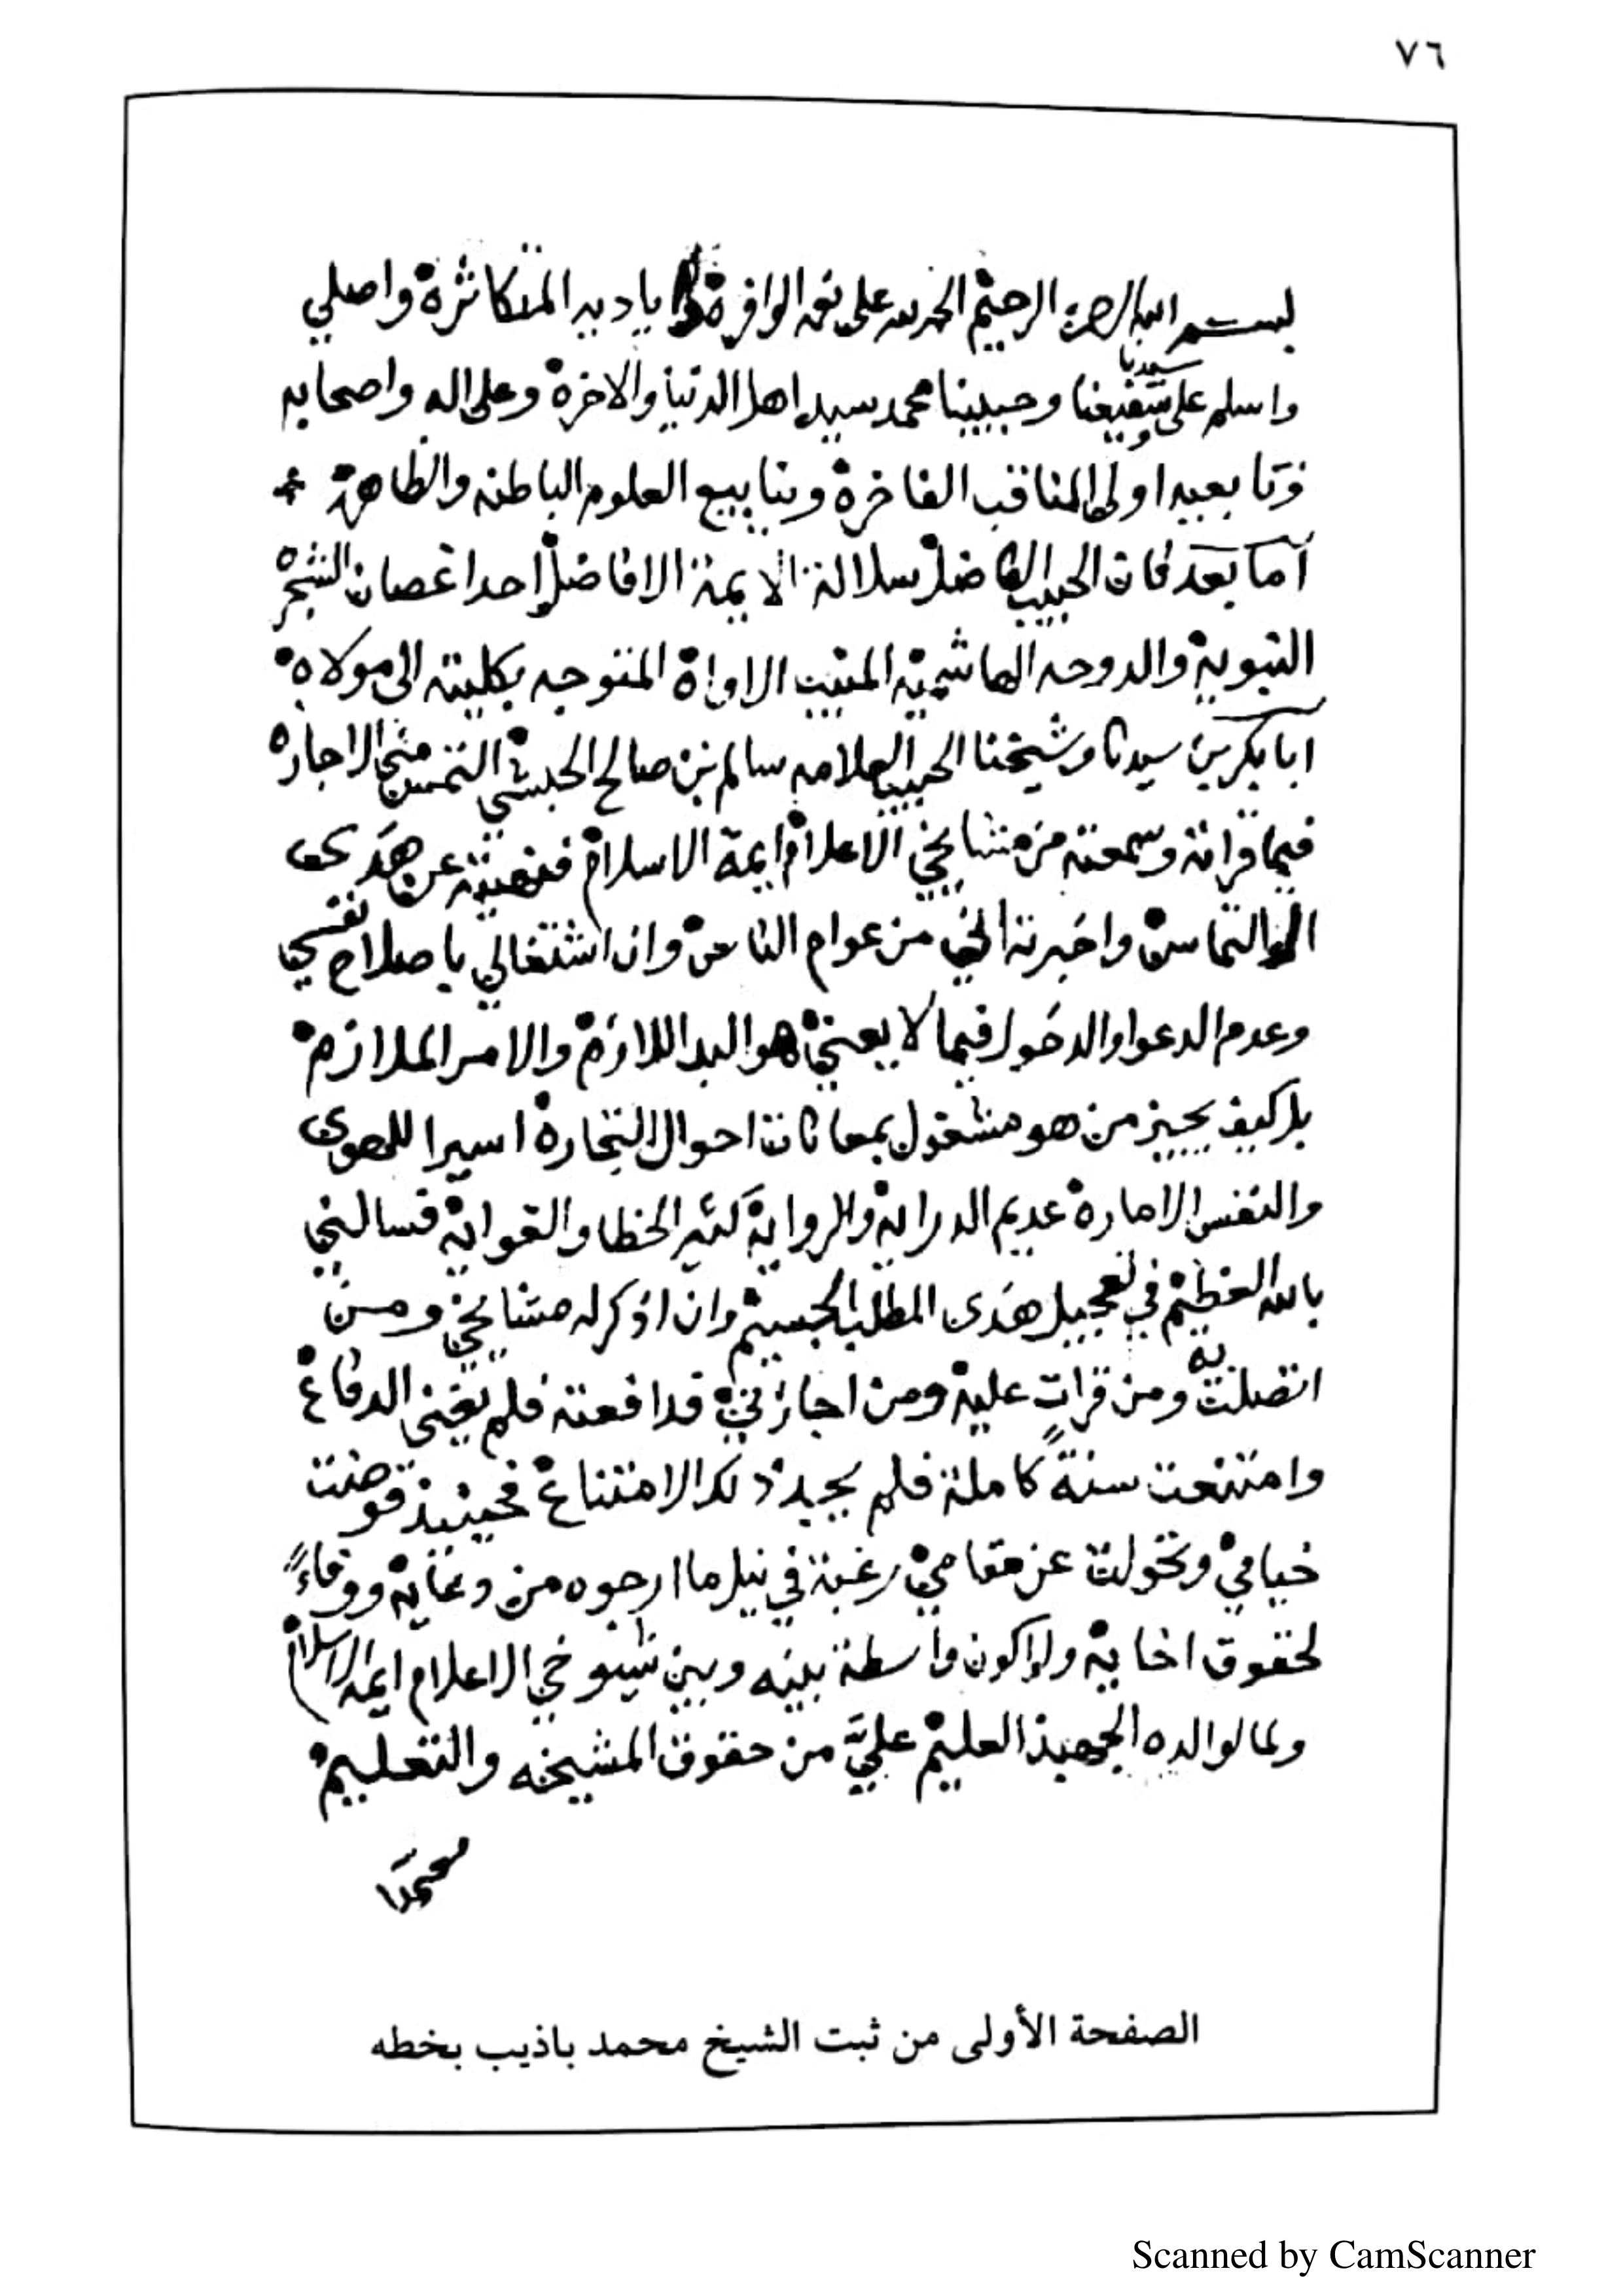 ٧٦
بسم الله الرحمن الرحيم الحمد لله على نعمه الوافرة واياديه المتكاثرة واصلي
واسلم على سيدنا وشفيعنا وحبيبنا محمد سيد اهل الدنيا والاخرة وعلى اله واصحابه
وتابعيه اولى المناقب الفاخرة وينابيع العلوم الباطنه والظاهرة
اما بعد فان الحبيب الفاضل سلالة الايمة الافاضل احد اغصان الشجرة
النبوية والدوحه الهاشمية المنيب الاواه المتوجه بكليته الى مولاه
ابا بكر بن سيدنا وشيخنا الحبيب العلامه سالم بن صالح الحبشي التمس مني الاجازه
فيما قراته وسمعته من مشايخي الاعلام ايمة الاسلام فنهيته عن هذى
الالتماس واخبرته اني من عوام الناس وان اشتغالي باصلاح نفسي
وعدم الدعوا والدخول فيما لا يعني هو البد اللازم والامر الملازم
بل كيف يجيز من هو مشغول بمعانات احوال التجارة اسيرا للهوى
والنفس الامارة عديم الدراية والرواية كثير الخطا والغواية فسالني
بالله العظيم في تعجيل هذى المطلب الجسيم وان اذكر له مشايخي ومن
اتصلت به ومن قرات عليه ومن اجازني فدافعته فلم يغنى الدفاع
وامتنعت سنة كاملة فلم يجد ذلك الامتناع فحينيذ قوضت
خيامي وتحولت عن مقامي رغبة في نيل ما ارجوه من دعايه ووفاءً
لحقوق اخايه ولاكون واسطة بينه وبين شيوخي الاعلام ايمة الاسلام
ولما لوالده الجهبذ العليم عليَّ من حقوق المشيخه والتعليم
الصفحة الأولى من ثبت الشيخ محمد باذيب بخطه
Scanned by CamScanner